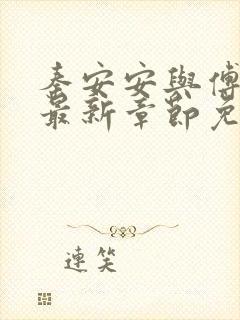 秦安安與傅
最新章節免
連笑